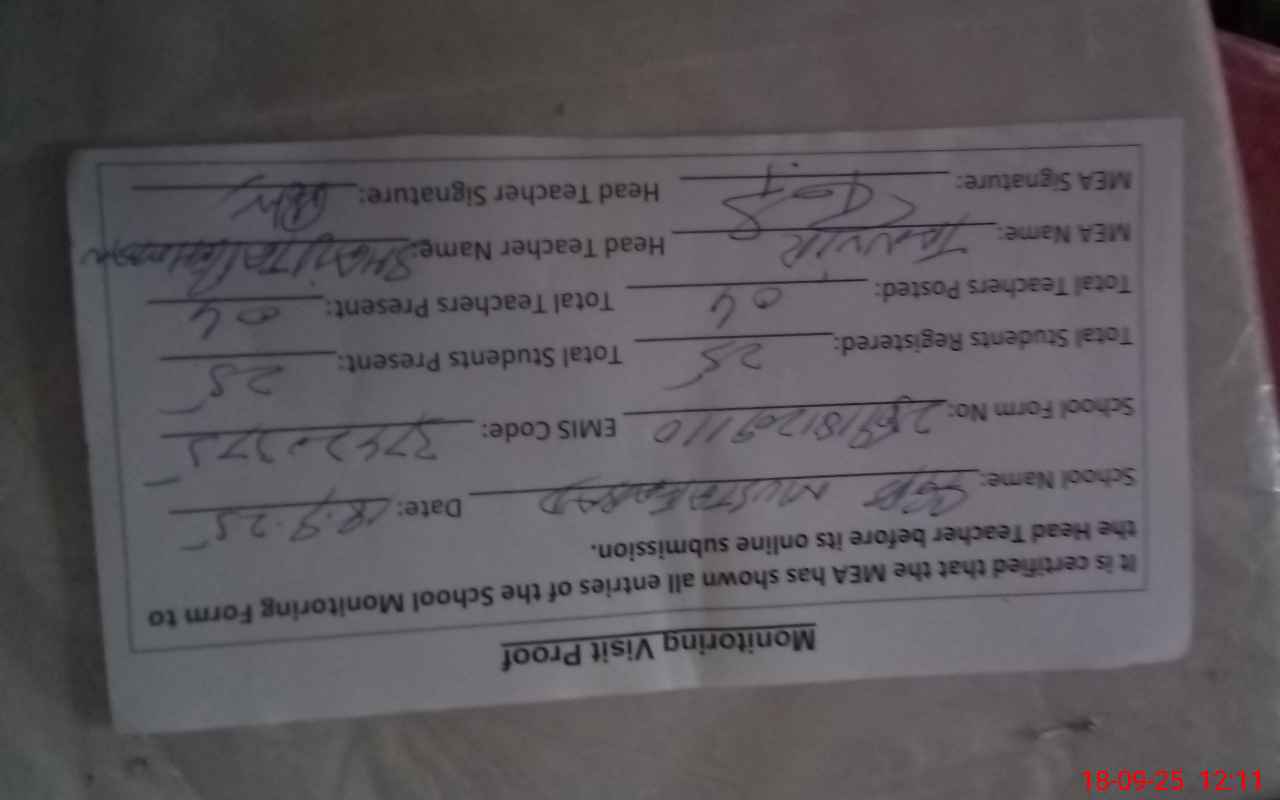 Monitoring Visit Proof
It is certified that the MEA has shown all entries of the School Monitoring Form to
the Head Teacher before its online submission.
School Name: MUSTAFABAD Date: 18.9.25
School Form No: EMIS Code:
Total Students Registered: 25 Total Students Present: 25
Total Teachers Posted: 04 Total Teachers Present: 04
MEA Name: TANVIR Head Teacher Name:
MEA Signature: Head Teacher Signature:
18-09-25 12:11